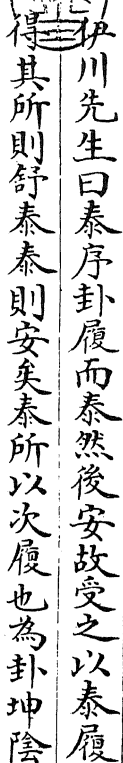 伊川先生曰泰序卦履而泰然後安故受之以泰履
得其所則舒泰泰則安矣泰所以次履也為卦坤陰